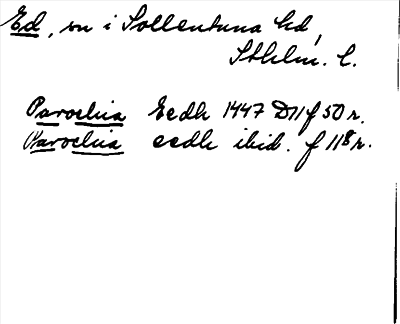 Ed, sn i Sollentuna hd,
Sthlm. l.
Parochia Eedh 1447 D11 f 50 r.
Parochia eedh ibid. f 118 r.